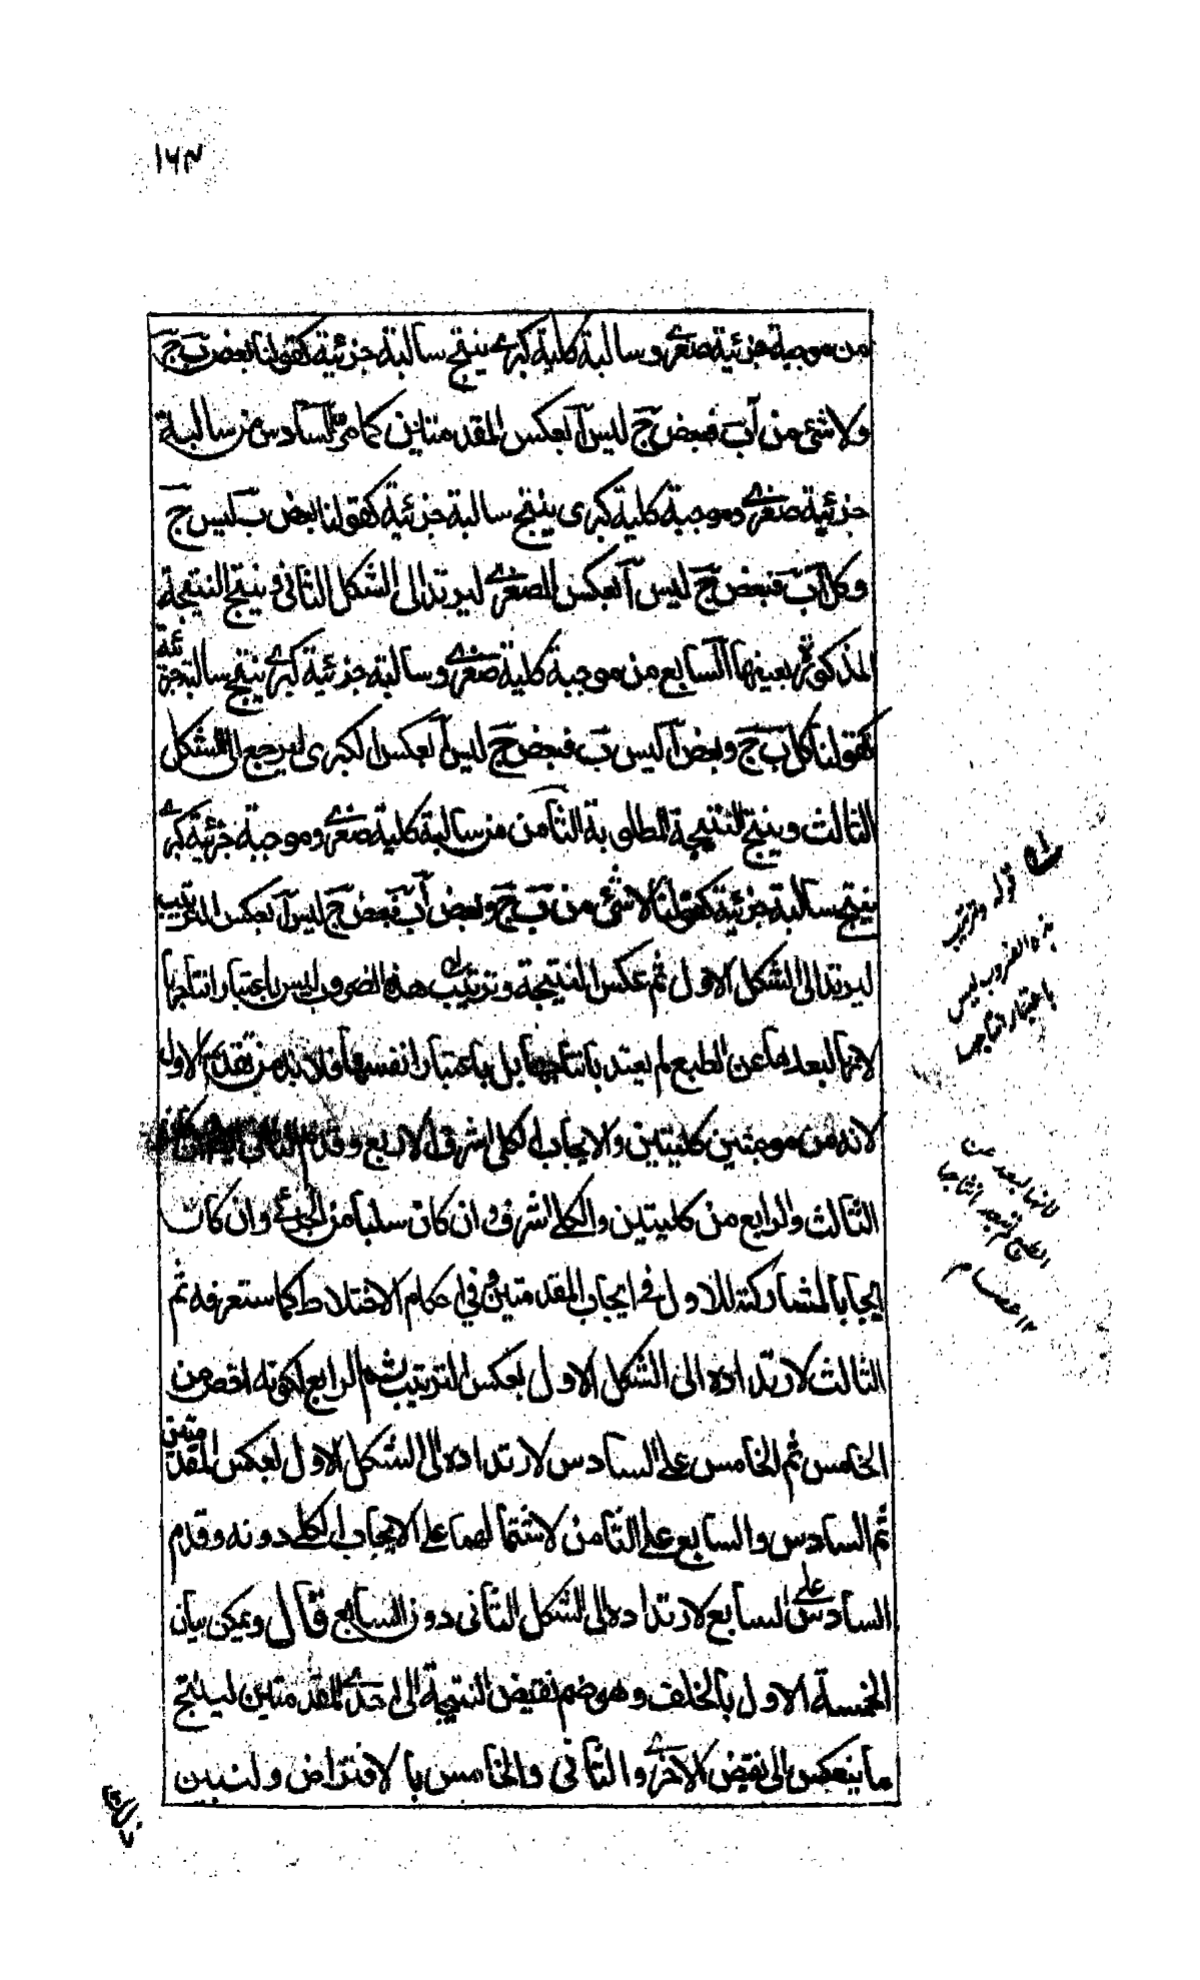 ١٦٣
من موجبة جزئية صغرى وسالبة كلية كبرى ينتج سالبة جزئية كقولنا بعض ب ج
ولا شئ من آ ب فبعض ج ليس آ بعكس المقدمتين كما مر السادس من سالبة
جزئية صغرى وموجبة كلية كبرى ينتج سالبة جزئية كقولنا بعض ب ليس ج
وكل آ ب فبعض ج ليس آ بعكس الصغرى ليرتد الى الشكل الثانى وينتج النتيجة
المذكورة بعينها السابع من موجبة كلية صغرى وسالبة جزئية كبرى ينتج سالبة جزئية
كقولنا كل ب ج وبعض آ ليس ب فبعض ج ليس آ بعكس الكبرى ليرجع الى الشكل
الثالث وينتج النتيجة المطلوبة الثامن من سالبة كلية صغرى وموجبة جزئية كبرى
ينتج سالبة جزئية كقولنا لا شئ من ب ج وبعض آ ب فبعض ج ليس آ بعكس الترتيب
ليرتد الى الشكل الاول ثم عكس النتيجة وترتيب هذه الضروب ليس باعتبار انتاجها
لانها لبعدها عن الطبع لم يعتد بانتاجها بل باعتبار انفسها فلا بد من تقديم الاول
لانه من موجبتين كليتين والايجاب الكلى اشرف الاربع وقدم الثانى
الثالث والرابع من كليتين والكلى اشرف وان كان سلبا من الجزئى وان كان
ايجابا لمشاركته للاول فى ايجاب المقدمتين وفى احكام الاختلاط كما ستعرفه ثم
الثالث لارتداده الى الشكل الاول بعكس الترتيب ثم الرابع لكونه اخص من
الخامس ثم الخامس على السادس لارتداده الى الشكل الاول بعكس المقدمتين
ثم السادس والسابع على الثامن لاشتمالهما على الايجاب الكلى دونه وقدم
السادس على السابع لارتداده الى الشكل الثانى دون السابع قال ويمكن بيان
الخمسة الاول بالخلف وهو ضم نقيض النتيجة الى احدى المقدمتين لينتج
ما ينعكس الى نقيض الاخرى والثانى والخامس بالافتراض ولنبين
قوله وترتيب
هذه الضروب ليس
باعتبار انتاجها
لانها لبعدها عن
الطبع لم يعتد بانتاجها
١٢ عصام